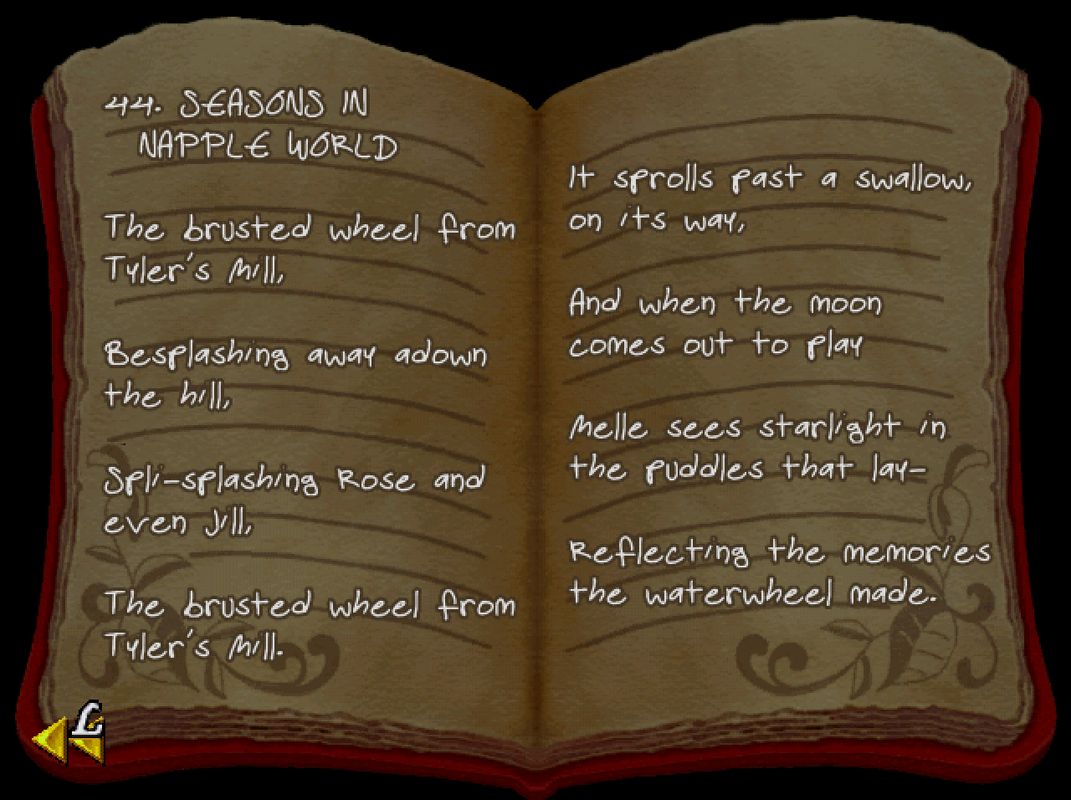 44. SEASONS IN
NAPPLE WORLD
The brusted wheel from
Tyler's Mill,
Besplashing away adown
the hill,
Spli-splashing Rose and
even Jill,
The brusted wheel from
Tyler's Mill.
It sprolls past a swallow,
on its way,
And when the moon
comes out to play
Melle sees starlight in
the puddles that lay-
Reflecting the memories
the waterwheel made.
L